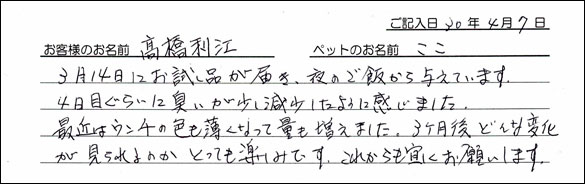 ご記入日 30年 4月 7日
お客様のお名前 高橋利江 ペットのお名前 ここ
3月14日にお試し品が届き、夜のご飯から与えています。
4日目ぐらいに臭いが少し減少したように感じました。
最近はウンチの色も薄くなって量も増えました。3ヶ月後どんな変化
が見られるのか とっても楽しみです。これからも宜しくお願いします。